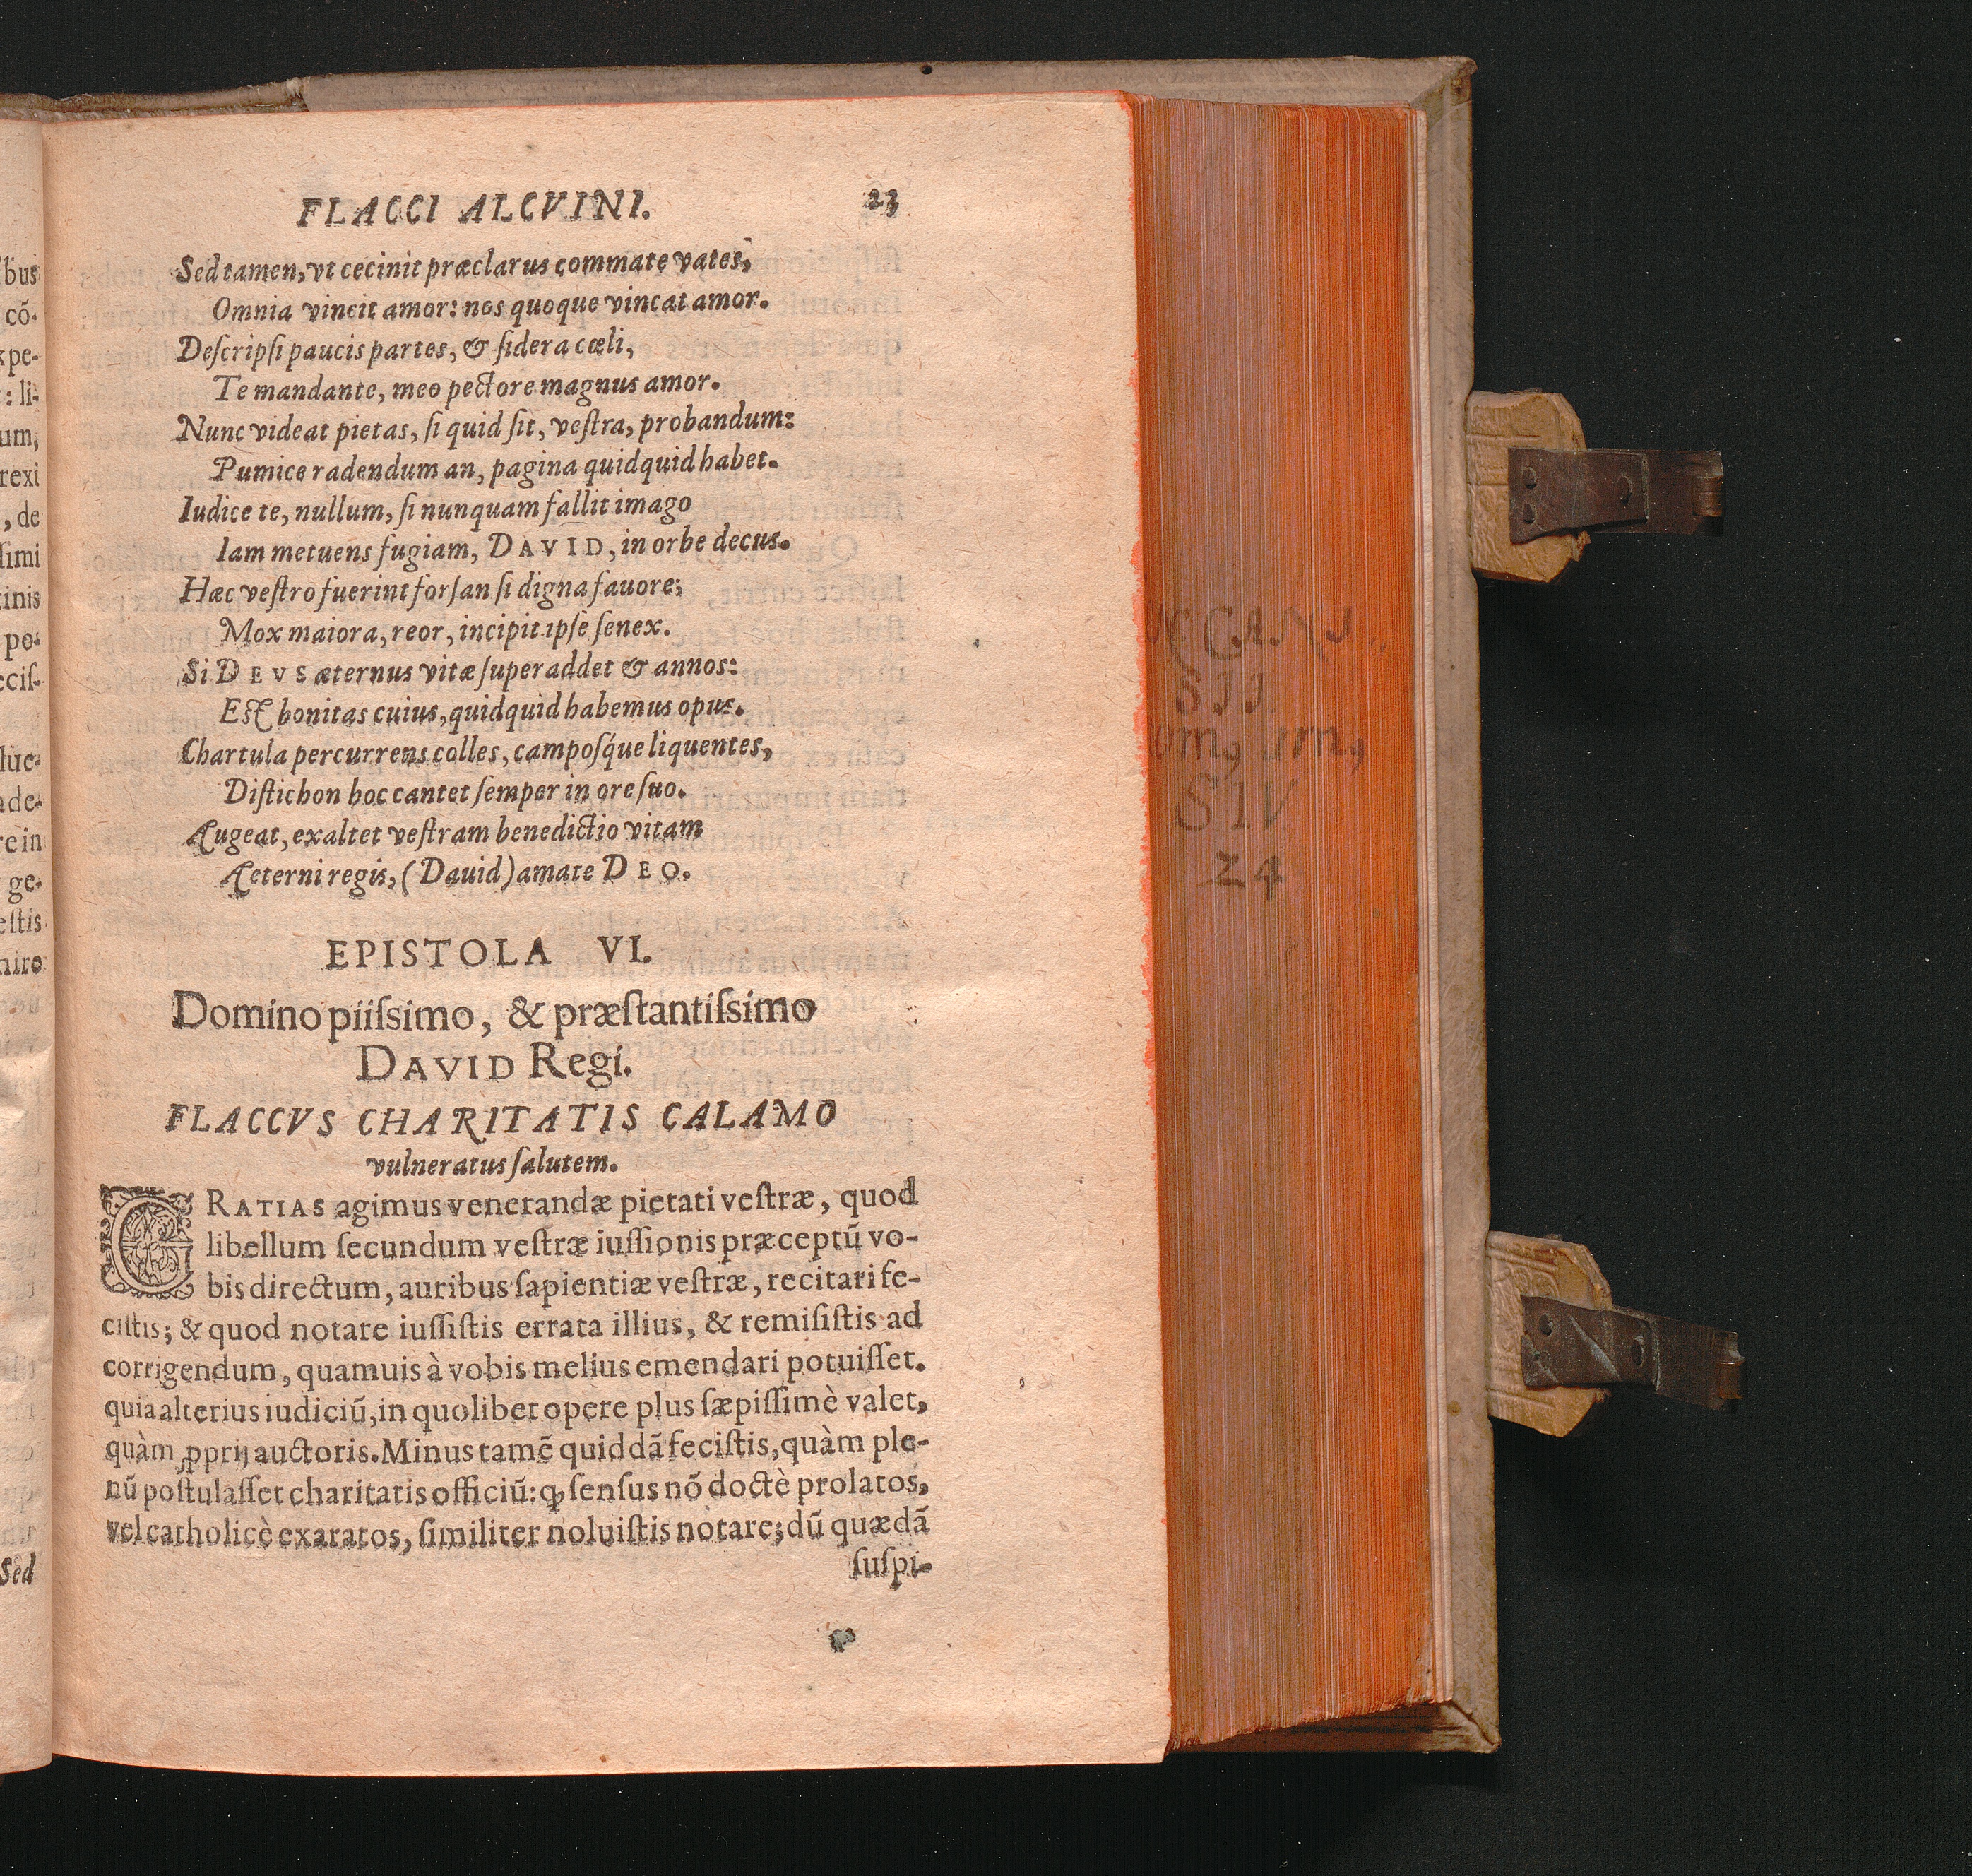 FLACCI ALCVINI. 23
Sed tamen, vt cecinit præclarus commate vates,
Omnia vincit amor: nos quoque vincat amor.
Deſcripſi paucis partes, & ſidera cœli,
Te mandante, meo pectore magnus amor.
Nunc videat pietas, ſi quid ſit, veſtra, probandum:
Pumice radendum an, pagina quidquid habet.
Iudice te, nullum, ſi nunquam fallit imago
Iam metuens fugiam, DAVID, in orbe decus.
Hæc veſtro fuerint forſan ſi digna fauore;
Mox maiora, reor, incipit ipſe ſenex.
Si DEVS æternus vitæ ſuperaddet & annos:
Eſt bonitas cuius, quidquid habemus opus.
Chartula percurrens colles, campoſq́ue liquentes,
Diſtichon hoc cantet ſemper in ore ſuo.
Augeat, exaltet veſtram benedictio vitam
Æterni regis, (Dauid) amate DEO.
EPISTOLA VI.
Domino piiſsimo, & præſtantiſsimo
DAVID Regi.
FLACCVS CHARITATIS CALAMO
vulneratus ſalutem.
GRATIAS agimus venerandæ pietati veſtræ, quod
libellum ſecundum veſtræ iuſſionis præceptũ vo-
bis directum, auribus ſapientiæ veſtræ, recitari fe-
ciſtis; & quod notare iuſſiſtis errata illius, & remiſiſtis ad
corrigendum, quamuis à vobis melius emendari potuiſſet.
quia alterius iudiciũ, in quolibet opere plus ſæpiſſimè valet,
quàm ꝓprij auctoris. Minus tamẽ quiddã feciſtis, quàm ple-
nũ poſtulaſſet charitatis officiũ: ꝙ ſenſus nõ doctè prolatos,
vel catholicè exaratos, ſimiliter noluiſtis notare; dũ quædã
ſuſpi-
bus
cõ-
xpe-
: li-
um,
rexi
, de
ſimi
tinis
po-
eciſ-
lue-
ade-
re in
ge-
eſtis
niro
Sed
SIV
24